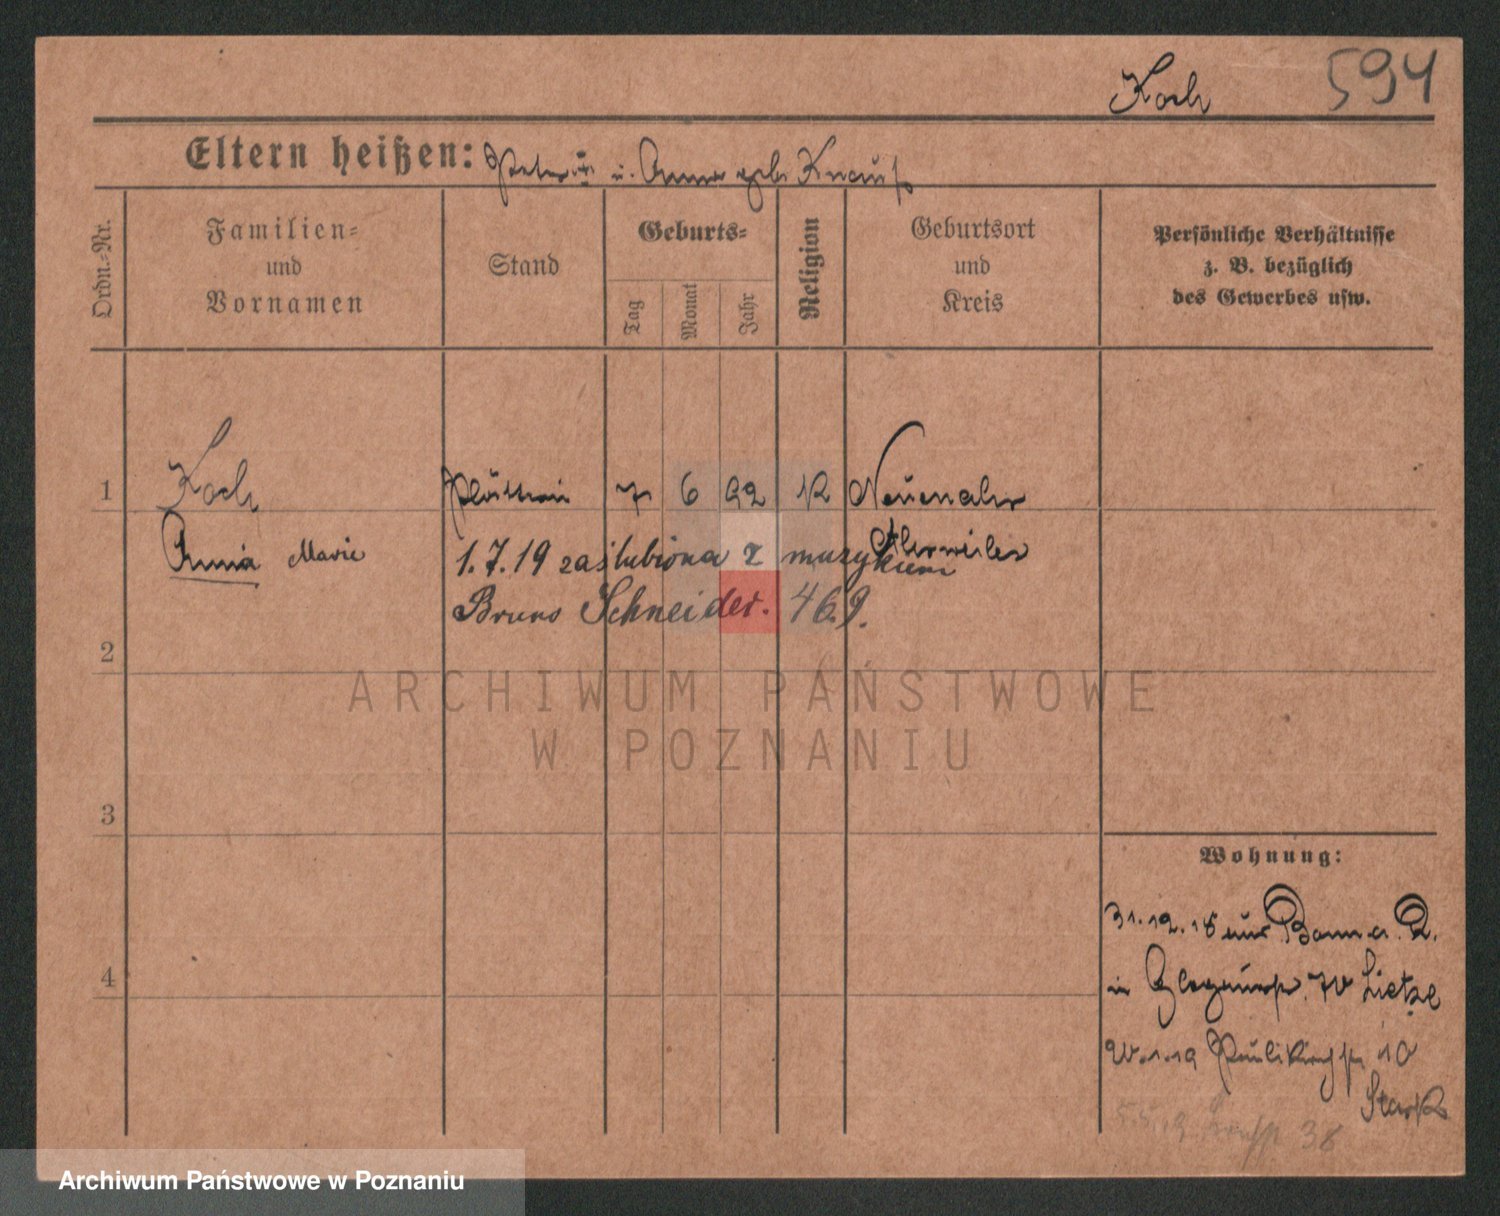 Koch 594
Eltern heißen: Peter u. Anna geb. Knauß
Ordn.-Nr.
Familien-
und
Vornamen
Stand
Geburts-
Tag
Monat
Jahr
Religion
Geburtsort
und
Kreis
Persönliche Verhältnisse
z. B. bezüglich
des Gewerbes usw.
1 Koch 7 6 92 K Neuenahr
Anna Marie Ahrweiler
1.7.19 zaślubiona z muzykiem
Bruno Schneider. 469.
2
3
4
Wohnung:
31.12.18 aus Bonn a. R.
in 70 Lietze
20.1.19 Paulikirchstr 10
Stark
38
ARCHIWUM PAŃSTWOWE
W POZNANIU
Archiwum Państwowe w Poznaniu